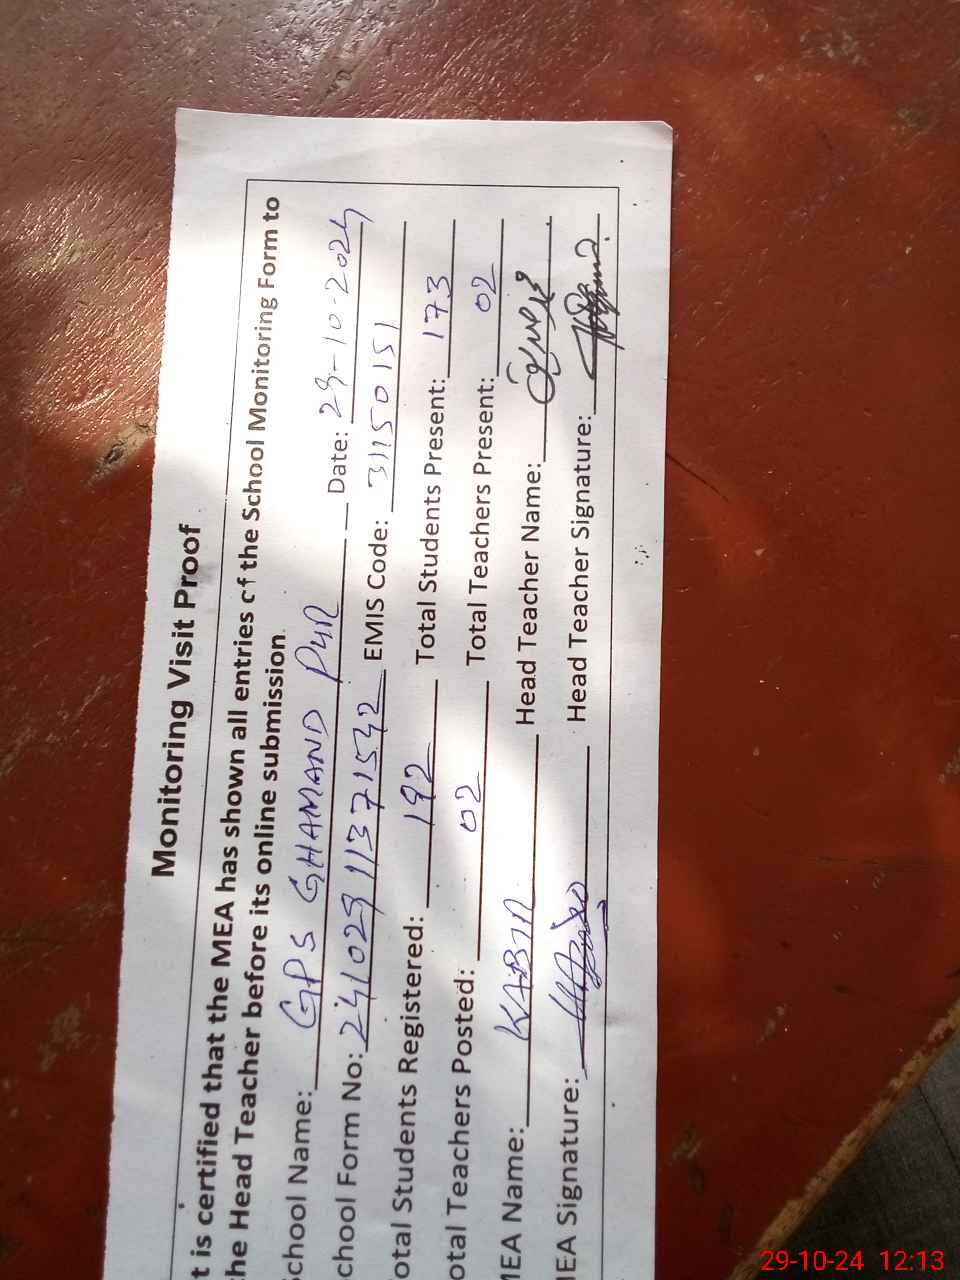 Monitoring Visit Proof
t is certified that the MEA has shown all entries of the School Monitoring Form to
he Head Teacher before its online submission
School Name: GPS GHAMAND PUR Date: 29-10-2024
chool Form No: 241029113715 42 EMIS Code: 31150151
otal Students Registered: 192 Total Students Present: 173
otal Teachers Posted: 02 Total Teachers Present: 02
MEA Name: KABIR Head Teacher Name:
MEA Signature: Head Teacher Signature:
29-10-24 12:13